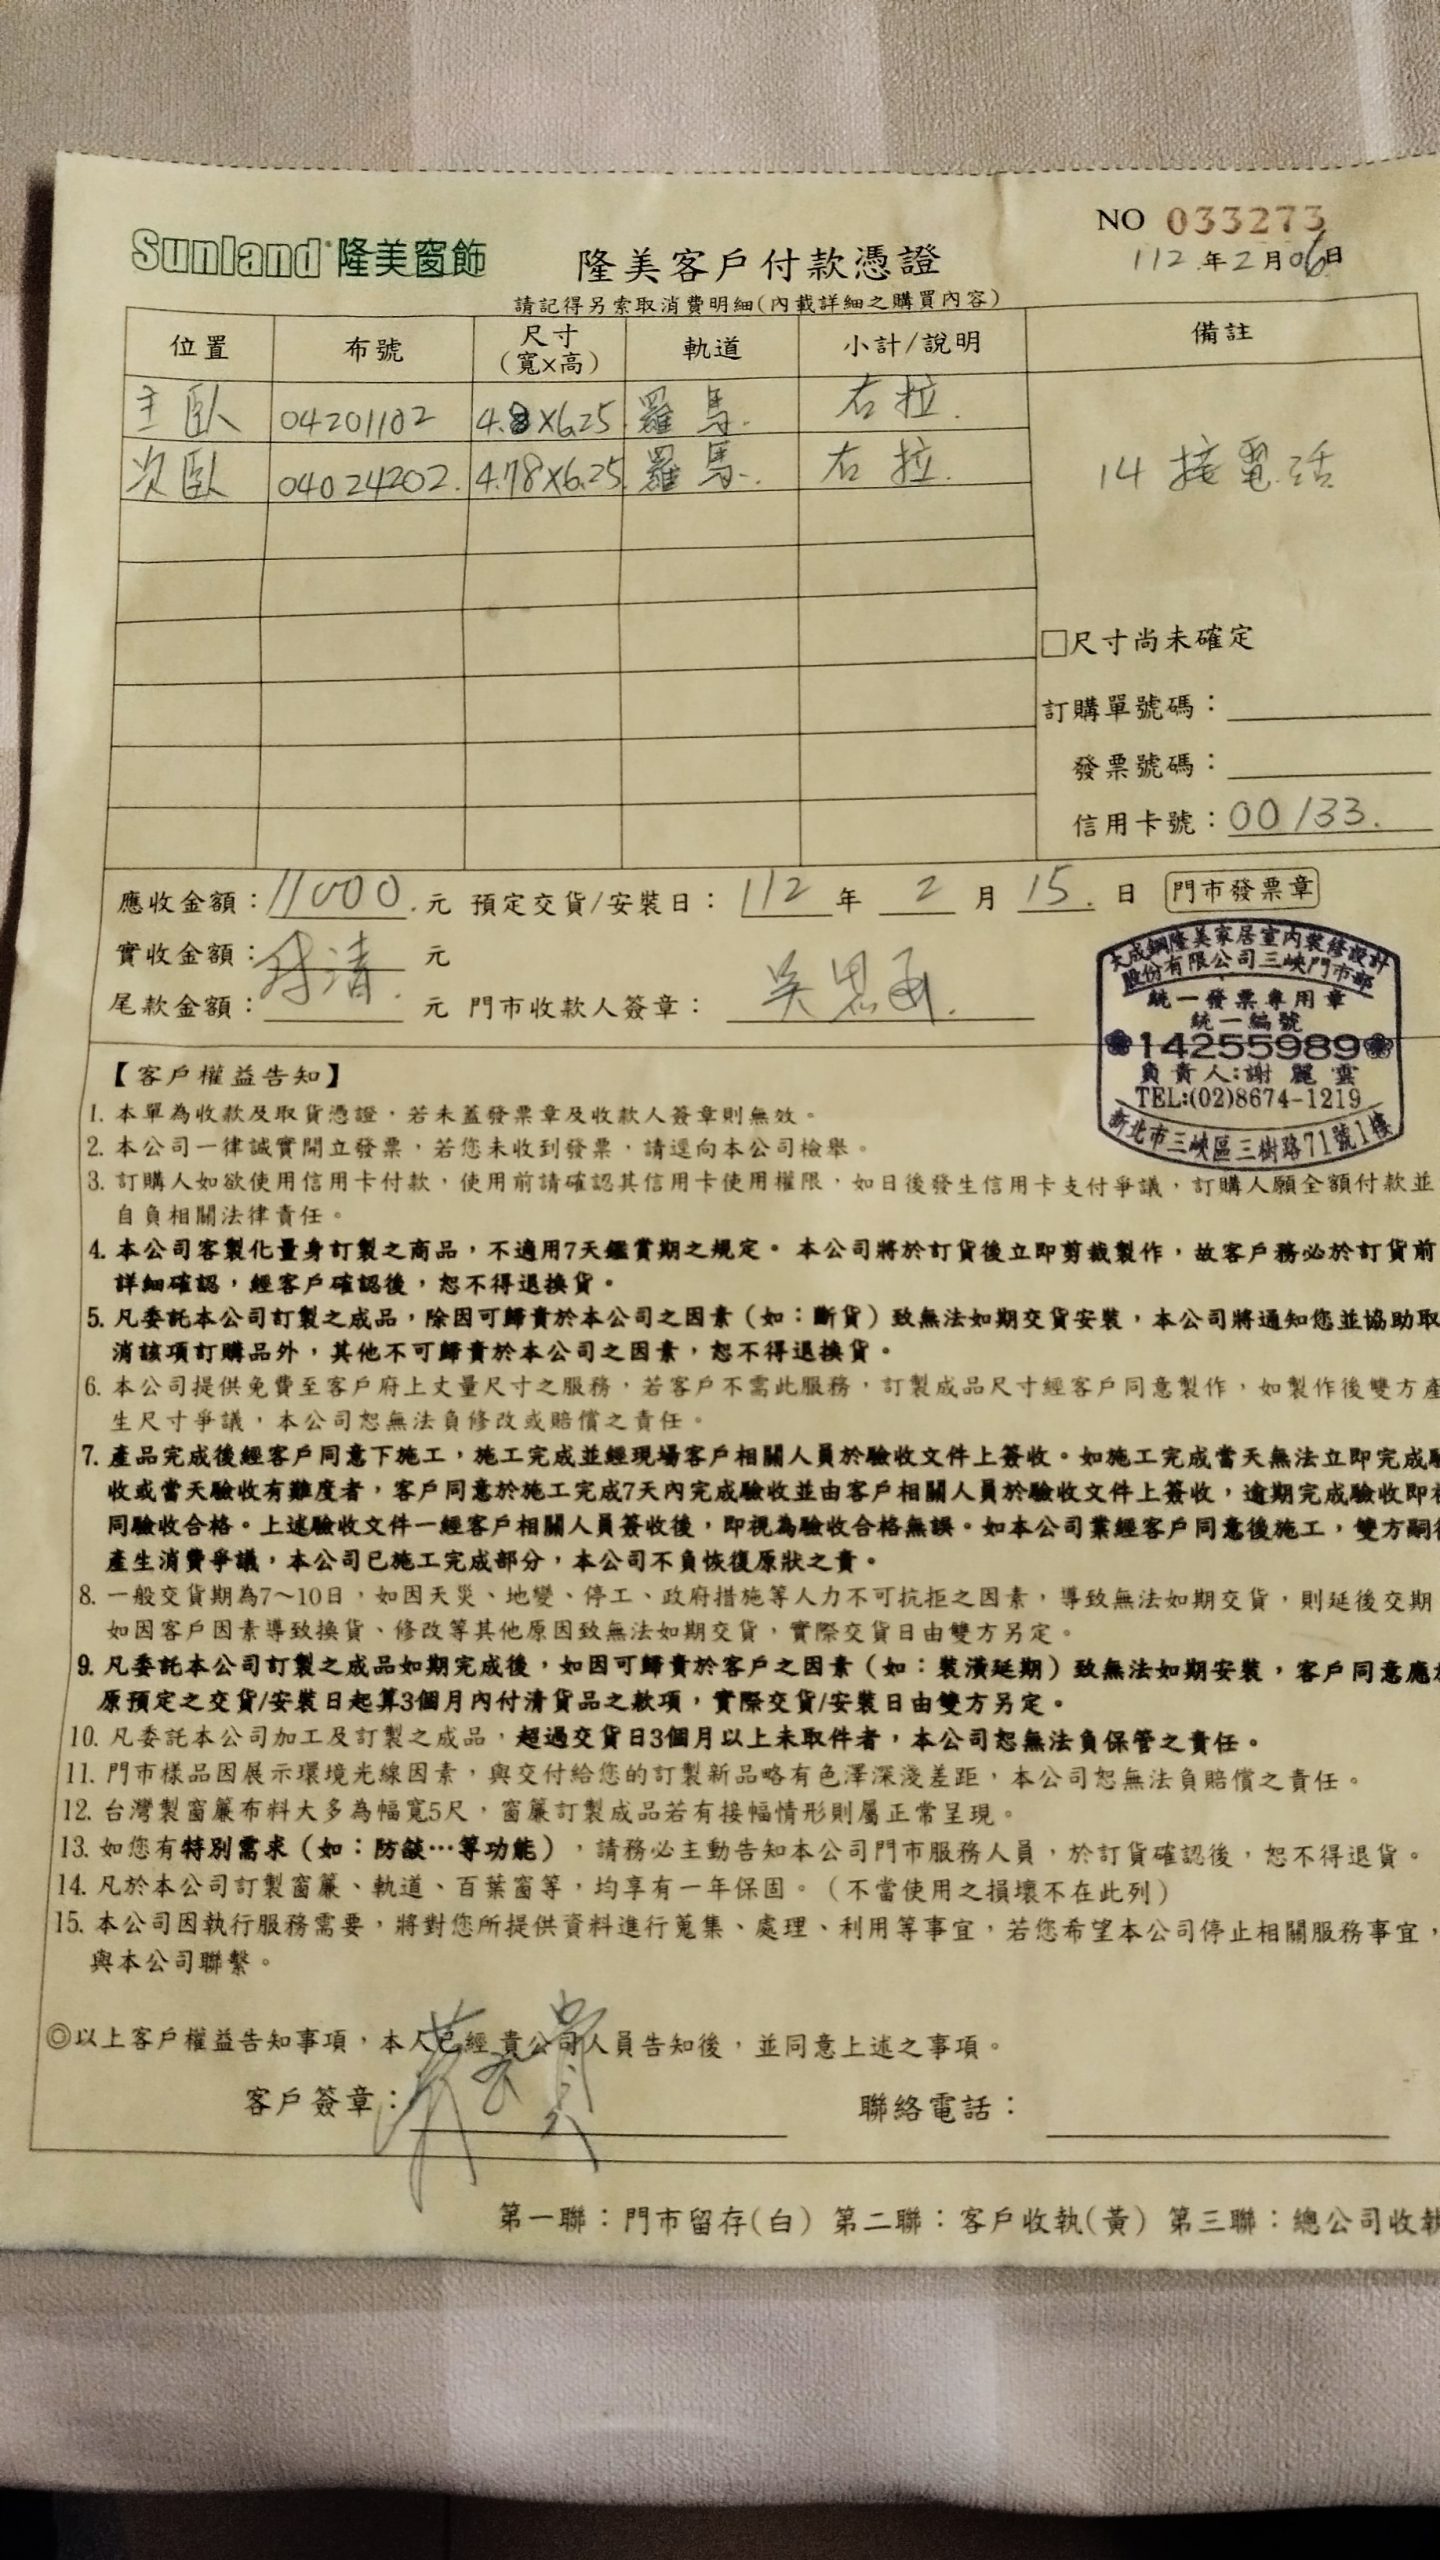 Sunland 隆美窗飾
隆美客戶付款憑證
NO 033273
112 年 2 月 06 日
請記得另索取消費明細(內載詳細之購買內容)
位置 布號 尺寸(寬×高) 軌道 小計/說明 備註
主臥 04201102 4.8×6.25 羅馬. 右拉.
次臥 04024202. 4.78×6.25 羅馬. 右拉.
14 接電話
□尺寸尚未確定
訂購單號碼：
發票號碼：
信用卡號：00133.
應收金額：11000. 元 預定交貨/安裝日： 112 年 2 月 15. 日 門市發票章
實收金額： 元
尾款金額： 元 門市收款人簽章：
大成鋼隆美家居室內裝修設計
股份有限公司三峽門市部
統一發票專用章
統一編號
14255989
負責人:謝麗雲
TEL:(02)8674-1219
新北市三峽區三樹路71號1樓
【客戶權益告知】
1. 本單為收款及取貨憑證，若未蓋發票章及收款人簽章則無效。
2. 本公司一律誠實開立發票，若您未收到發票，請逕向本公司檢舉。
3. 訂購人如欲使用信用卡付款，使用前請確認其信用卡使用權限，如日後發生信用卡支付爭議，訂購人願全額付款並
自負相關法律責任。
4. 本公司客製化量身訂製之商品，不適用7天鑑賞期之規定。 本公司將於訂貨後立即剪裁製作，故客戶務必於訂貨前
詳細確認，經客戶確認後，恕不得退換貨。
5. 凡委託本公司訂製之成品，除因可歸責於本公司之因素（如：斷貨）致無法如期交貨安裝，本公司將通知您並協助取
消該項訂購品外，其他不可歸責於本公司之因素，恕不得退換貨。
6. 本公司提供免費至客戶府上丈量尺寸之服務，若客戶不需此服務，訂製成品尺寸經客戶同意製作，如製作後雙方產
生尺寸爭議，本公司恕無法負修改或賠償之責任。
7. 產品完成後經客戶同意下施工，施工完成並經現場客戶相關人員於驗收文件上簽收。如施工完成當天無法立即完成驗
收或當天驗收有難度者，客戶同意於施工完成7天內完成驗收並由客戶相關人員於驗收文件上簽收，逾期完成驗收即視
同驗收合格。上述驗收文件一經客戶相關人員簽收後，即視為驗收合格無誤。如本公司業經客戶同意後施工，雙方嗣後
產生消費爭議，本公司已施工完成部分，本公司不負恢復原狀之責。
8. 一般交貨期為7～10日，如因天災、地變、停工、政府措施等人力不可抗拒之因素，導致無法如期交貨，則延後交期
如因客戶因素導致換貨、修改等其他原因致無法如期交貨，實際交貨日由雙方另定。
9. 凡委託本公司訂製之成品如期完成後，如因可歸責於客戶之因素（如：裝潢延期）致無法如期安裝，客戶同意應於
原預定之交貨/安裝日起算3個月內付清貨品之款項，實際交貨/安裝日由雙方另定。
10. 凡委託本公司加工及訂製之成品，超過交貨日3個月以上未取件者，本公司恕無法負保管之責任。
11. 門市樣品因展示環境光線因素，與交付給您的訂製新品略有色澤深淺差距，本公司恕無法負賠償之責任。
12. 台灣製窗簾布料大多為幅寬5尺，窗簾訂製成品若有接幅情形則屬正常呈現。
13. 如您有特別需求（如：防燄…等功能），請務必主動告知本公司門市服務人員，於訂貨確認後，恕不得退貨。
14. 凡於本公司訂製窗簾、軌道、百葉窗等，均享有一年保固。（不當使用之損壞不在此列）
15. 本公司因執行服務需要，將對您所提供資料進行蒐集、處理、利用等事宜，若您希望本公司停止相關服務事宜，
與本公司聯繫。
◎以上客戶權益告知事項，本人已經 貴公司人員告知後，並同意上述之事項。
客戶簽章：
聯絡電話：
第一聯：門市留存(白) 第二聯：客戶收執(黃) 第三聯：總公司收執